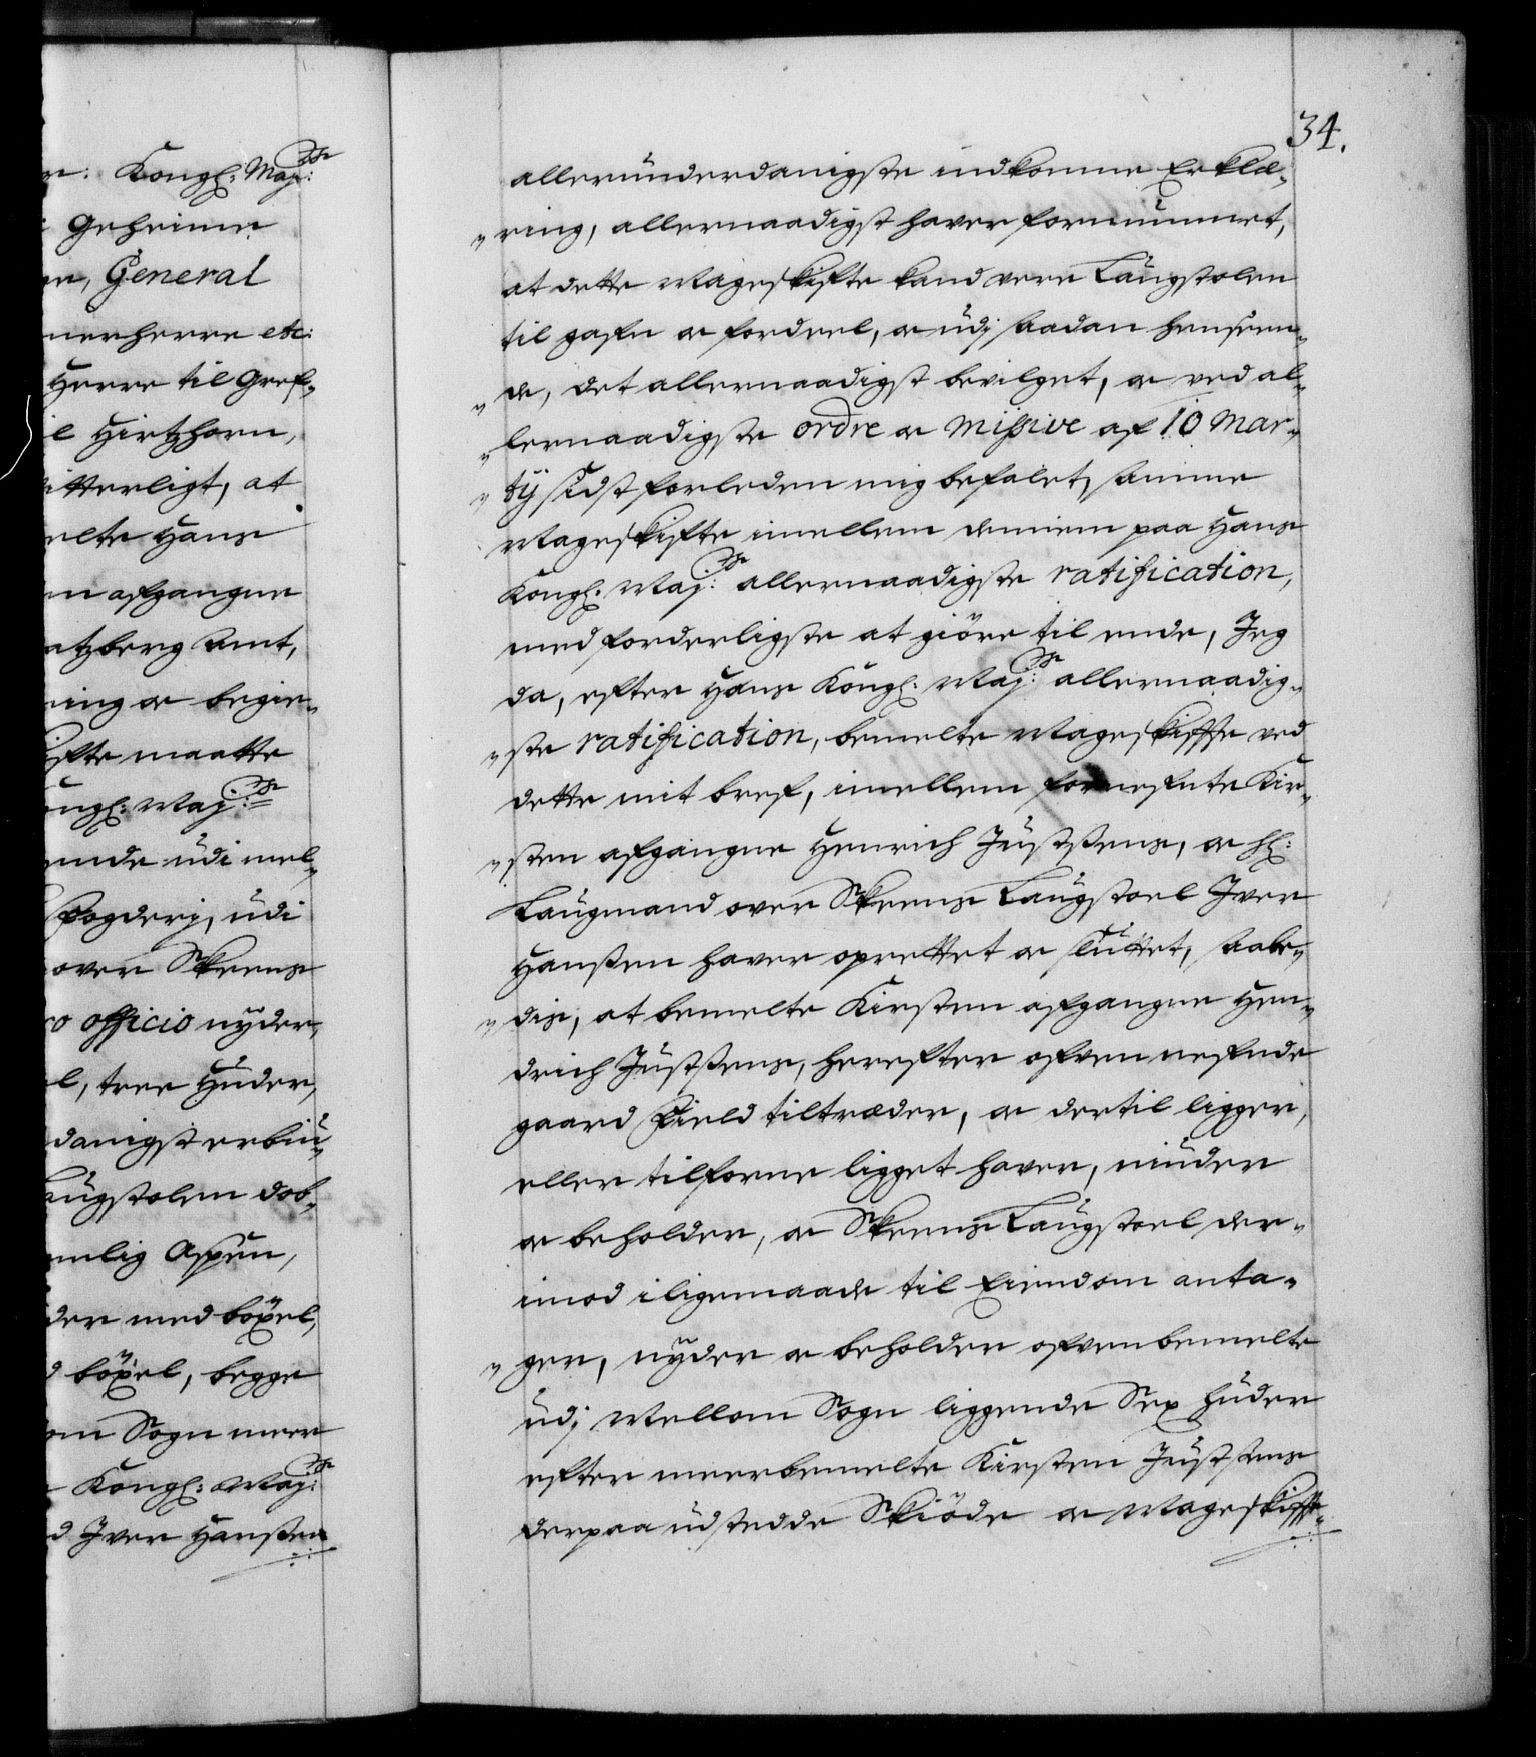 r: Kongl: May:ts
i Geheime
ge, General
merherre etc:
Herre til Gref„
il Hirtzhorn,
itterligt, at
elte Hans
en afgangne
atzberg Amt,
ning oc begie„
ifte maatte
ongl: May:ts
ende udi mel„
Fogderj, udi
over Skeens
ro officio nyder,
el, tree Huder,
danigst erbiu„
augstolen dob„
mlig Aspun,
der med böxel,
d böxel, begge
om Sogn meer
r Kongl: May:ts
d Iver Hanßen
34.
allerunderdanigste indkomne Erklæ„
„ring, allernaadigst haver fornummet,
at dette Mageskifte kand vere Laugstolen
til gafn oc fordeel, oc udj saadan henseen„
„de, det allernaadigst bevilget, oc ved al„
„lernaadigste ordre oc Missive af 10 Mar„
„tij sidstforleden mig befalet, samme
Mageskifte imellem dennem paa Hans
Kongl. May:ts allernaadigste ratification,
med forderligste at giöre til ende, Jeg
da, efter Hans Kongl. May:ts allernaadig„
„ste ratification, bemelte Mageskiffte ved
dette mit bref, imellem fornefnte Kir„
„sten afgangne Henrich Justßens, oc Hl:
Laugmand over Skeens Laugstoel Iver
Hanßen haver oprettet oc sluttet, saale„
„dis, at bemelte Kirsten afgangne Hen„
drich Justßens, herefter ofvennefnde
gaard Field tiltræder, oc dertil ligger,
eller tilforne ligget haver, niuder
oc beholder, oc Skeens Laugstoel der„
imod iligemaade til Eiendom anta„
„ger, nyder oc beholder ofvenbemelte
udj Mellom Sogn liggende Sex huder
efter meerbemelte Kirsten Justßens
derpaa udstedde Skiöde oc Mageskiffte„